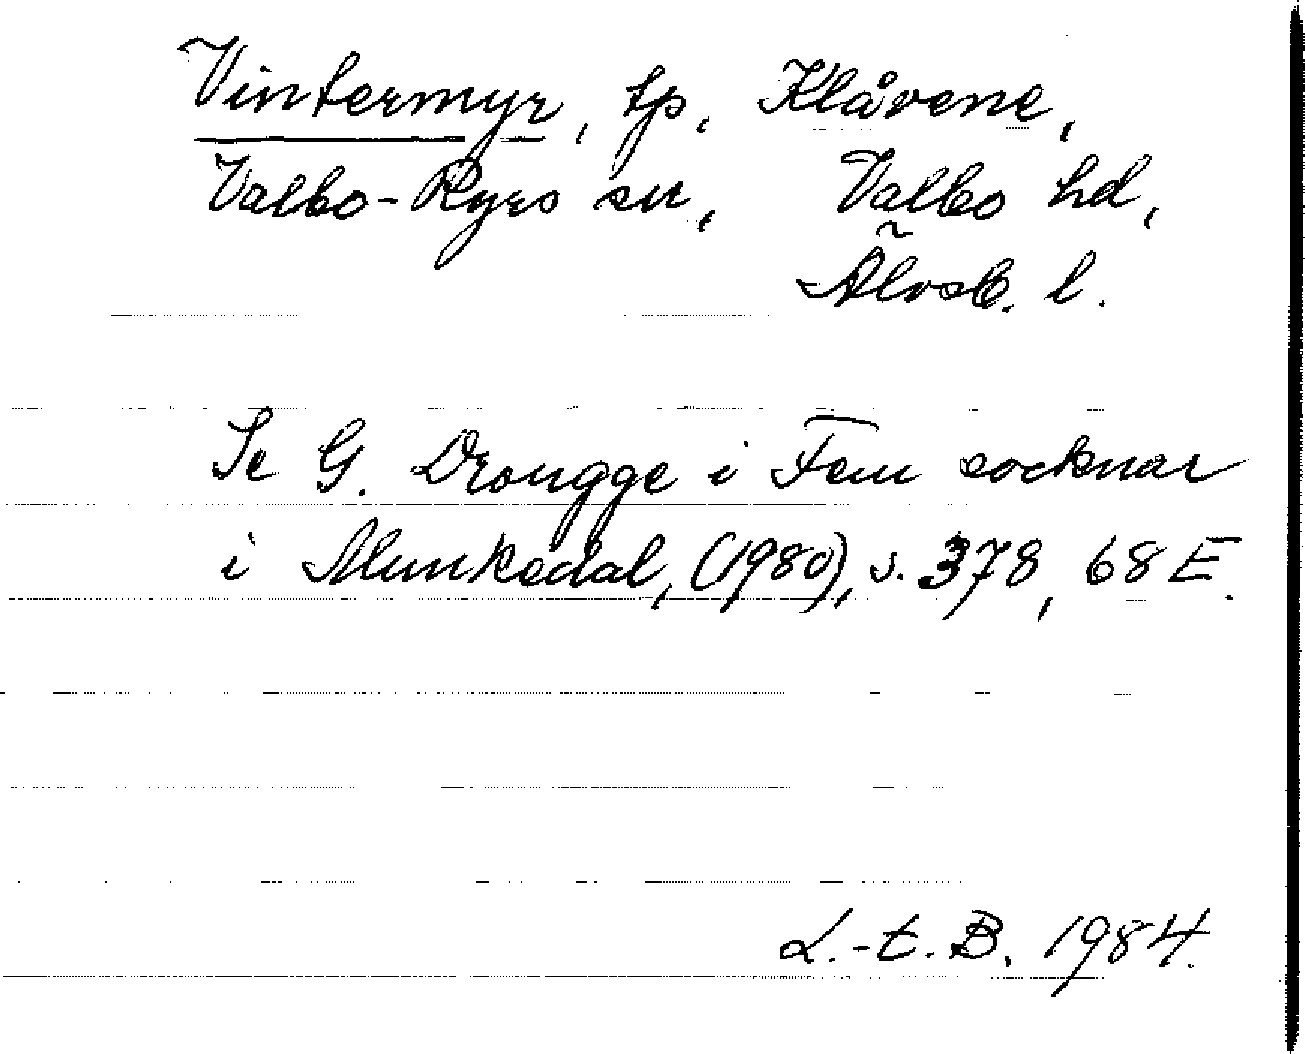 Vintermyr, tp, Klåvene,
Valbo-Ryrs sn, Valbo hd,
Älvsb. l.
Se G. Drougge i Fem socknar
i Munkedal, (1980), s. 378, 68 E.
L.-t. B. 1984.